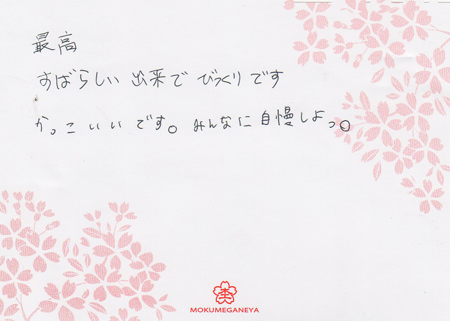 最高
すばらしい 出来で びっくりです
かっこいいです。みんなに自慢しよっ。
MOKUMEGANEYA